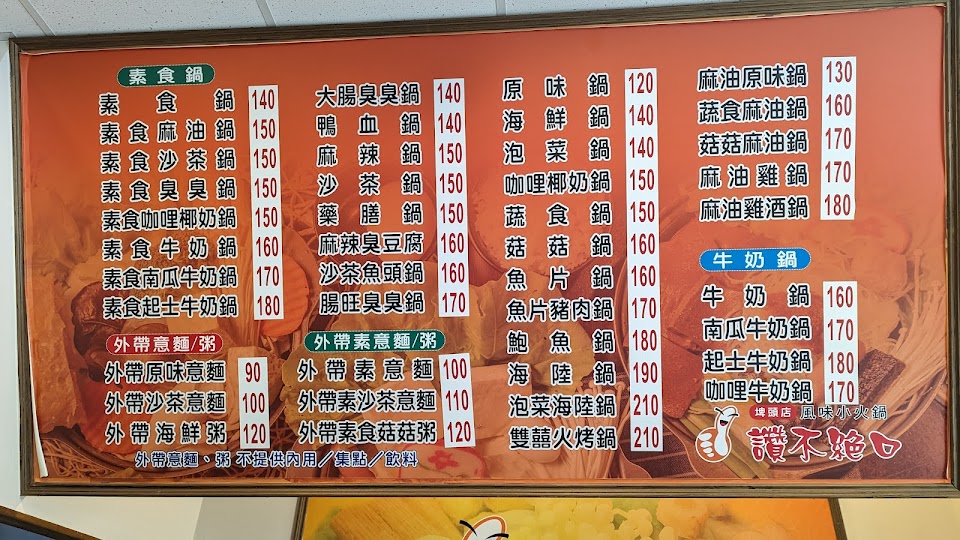 素食鍋
素食鍋 140
素食麻油鍋 150
素食沙茶鍋 150
素食臭臭鍋 150
素食咖哩椰奶鍋 150
素食牛奶鍋 160
素食南瓜牛奶鍋 170
素食起士牛奶鍋 180
外帶意麵/粥
外帶原味意麵 90
外帶沙茶意麵 100
外帶海鮮粥 120
大腸臭臭鍋 140
鴨血鍋 140
麻辣鍋 150
沙茶鍋 150
藥膳鍋 150
麻辣臭豆腐 160
沙茶魚頭鍋 160
腸旺臭臭鍋 170
外帶素意麵/粥
外帶素意麵 100
外帶素沙茶意麵 110
外帶素食菇菇粥 120
外帶意麵、粥 不提供內用/集點/飲料
原味鍋 120
海鮮鍋 140
泡菜鍋 140
咖哩椰奶鍋 150
蔬食鍋 150
菇菇鍋 160
魚片鍋 160
魚片豬肉鍋 170
鮑魚鍋 180
海陸鍋 190
泡菜海陸鍋 210
雙囍火烤鍋 210
麻油原味鍋 130
蔬食麻油鍋 160
菇菇麻油鍋 170
麻油雞鍋 170
麻油雞酒鍋 180
牛奶鍋
牛奶鍋 160
南瓜牛奶鍋 170
起士牛奶鍋 180
咖哩牛奶鍋 170
埤頭店 風味小火鍋
讚不絕口